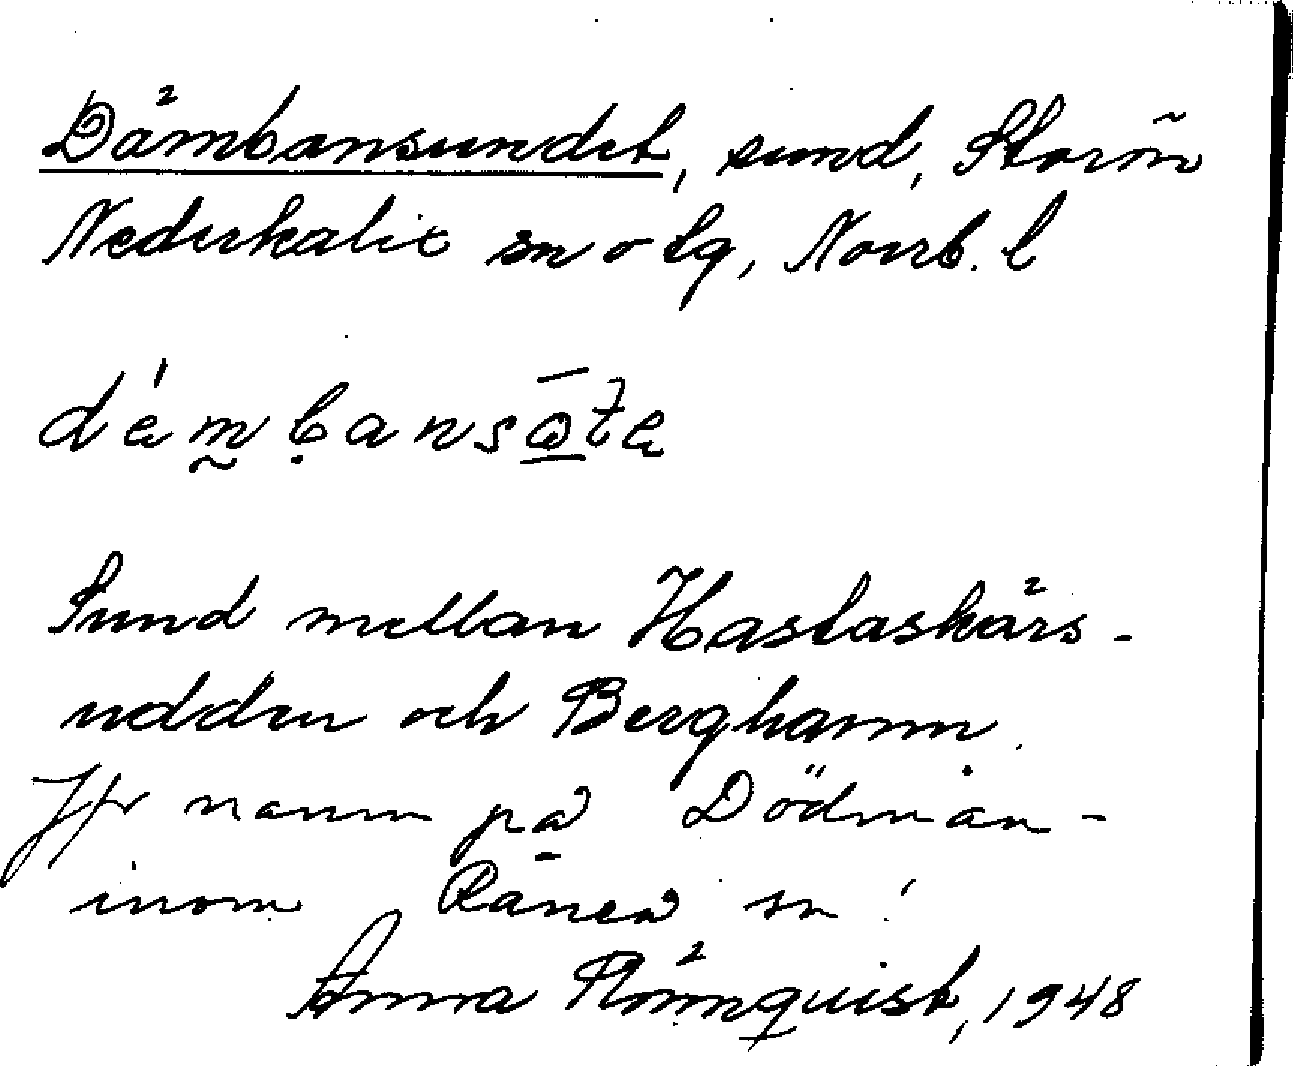 Dämbansundet, sund, Storön
Nederkalix sn o tg, Norrb. l
Sund mellan Hastaskärs-
udden och Berghamn.
Jfr namn på Dödmän-
inom Råneå sn!
Anna Rönnquist, 1948